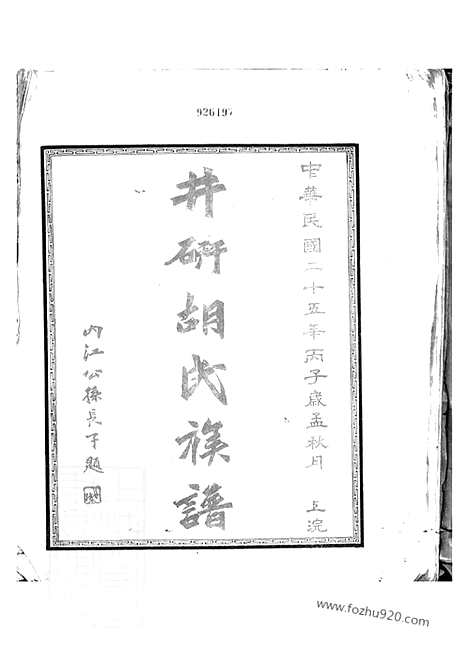 926197
中華民國二十五年丙子歲孟秋月 上浣
井研胡氏族譜
內江公孫長子題
www.fozhu920.com